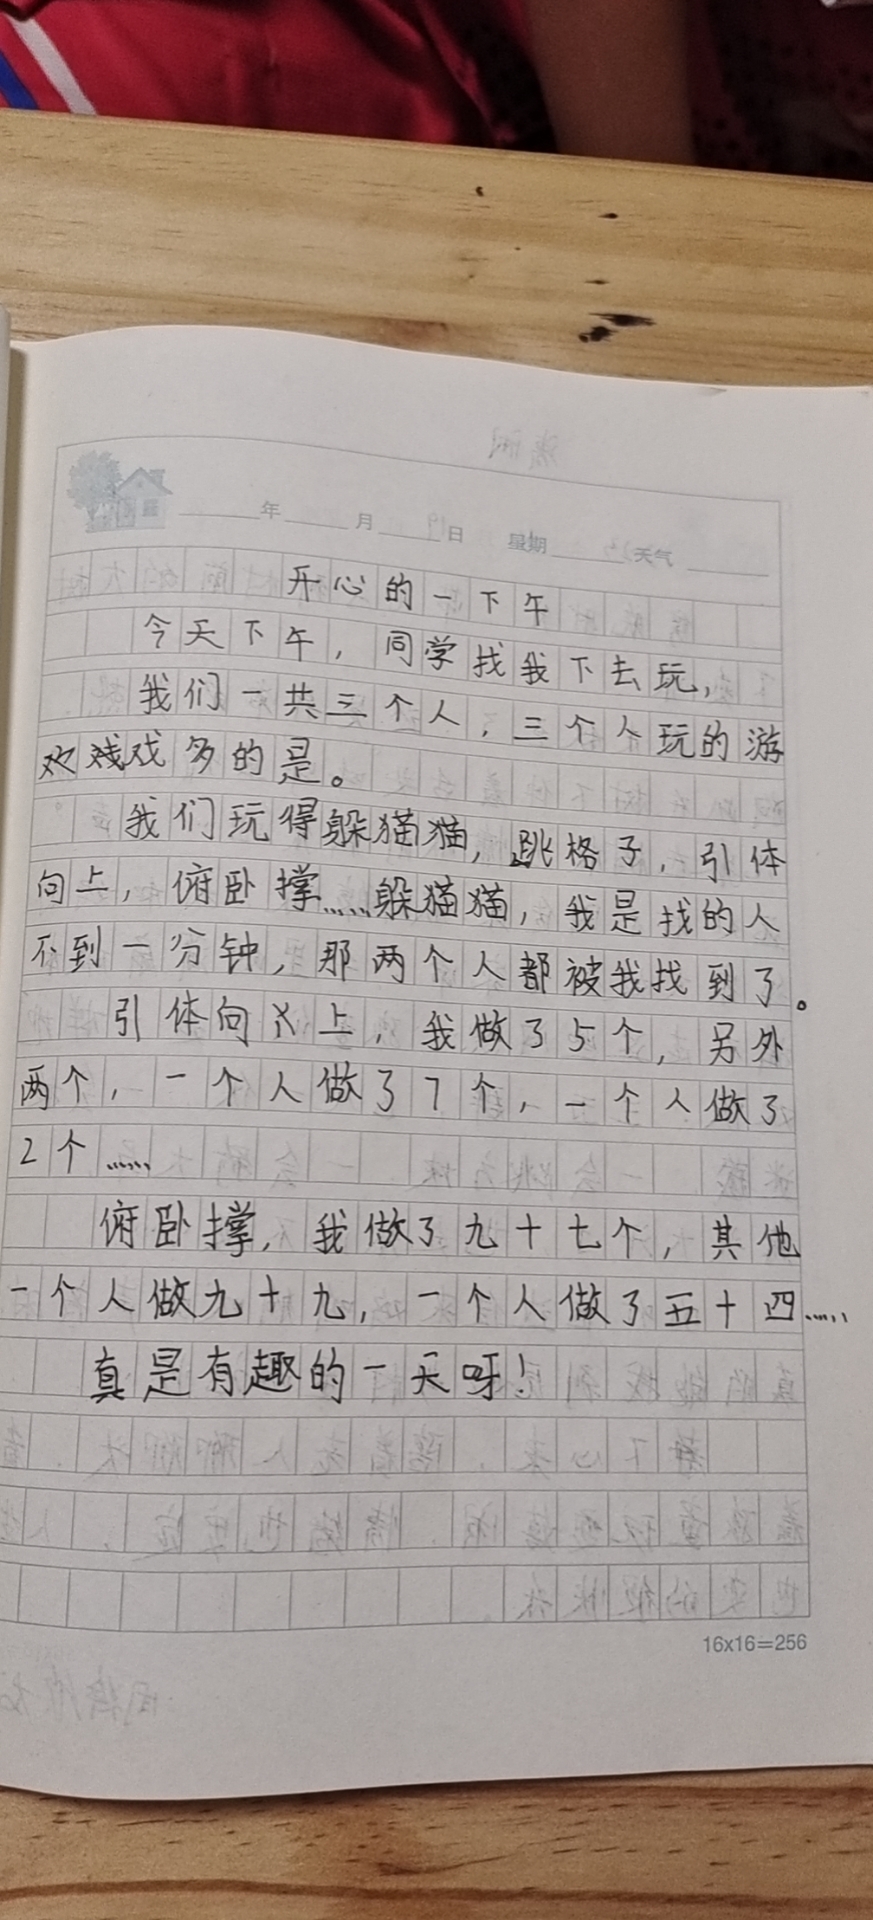 年 月 日 星期 天气
开心的一下午
今天下午，同学找我下去玩，
我们一共三个人，三个人玩的游
戏戏多的是。
我们玩得躲猫猫，跳格子，引体
向上，俯卧撑……躲猫猫，我是找的人
不到一分钟，那两个人都被我找到了。
引体向上，我做了5个，另外
两个，一个人做了7个，一个人做了
2个……
俯卧撑，我做了九十七个，其他
一个人做九十九，一个人做了五十四……
真是有趣的一天呀！
16x16=256